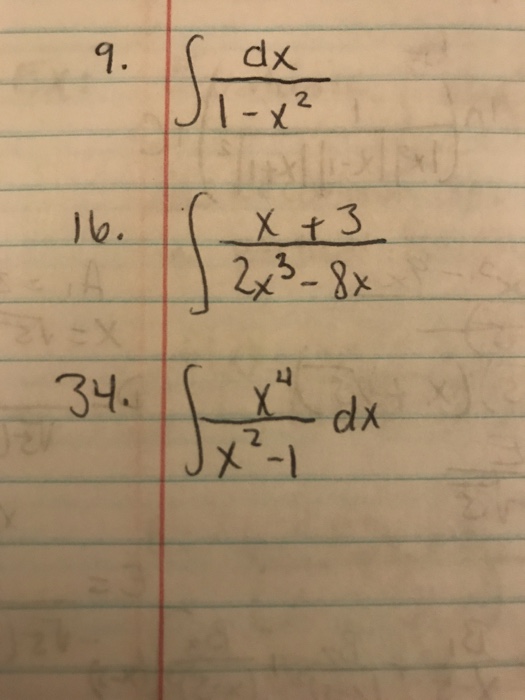 9. ∫ dx / (1 - x²)
16. ∫ (x + 3) / (2x³ - 8x)
34. ∫ x⁴ / (x² - 1) dx